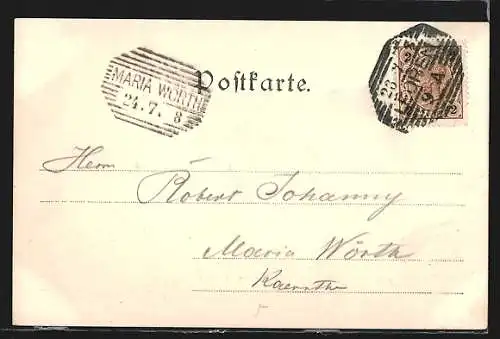 MARIA WÖRTH
24.7. 8
Postkarte.
Herrn
Robert Johanny
Maria Wörth
Kaernthen